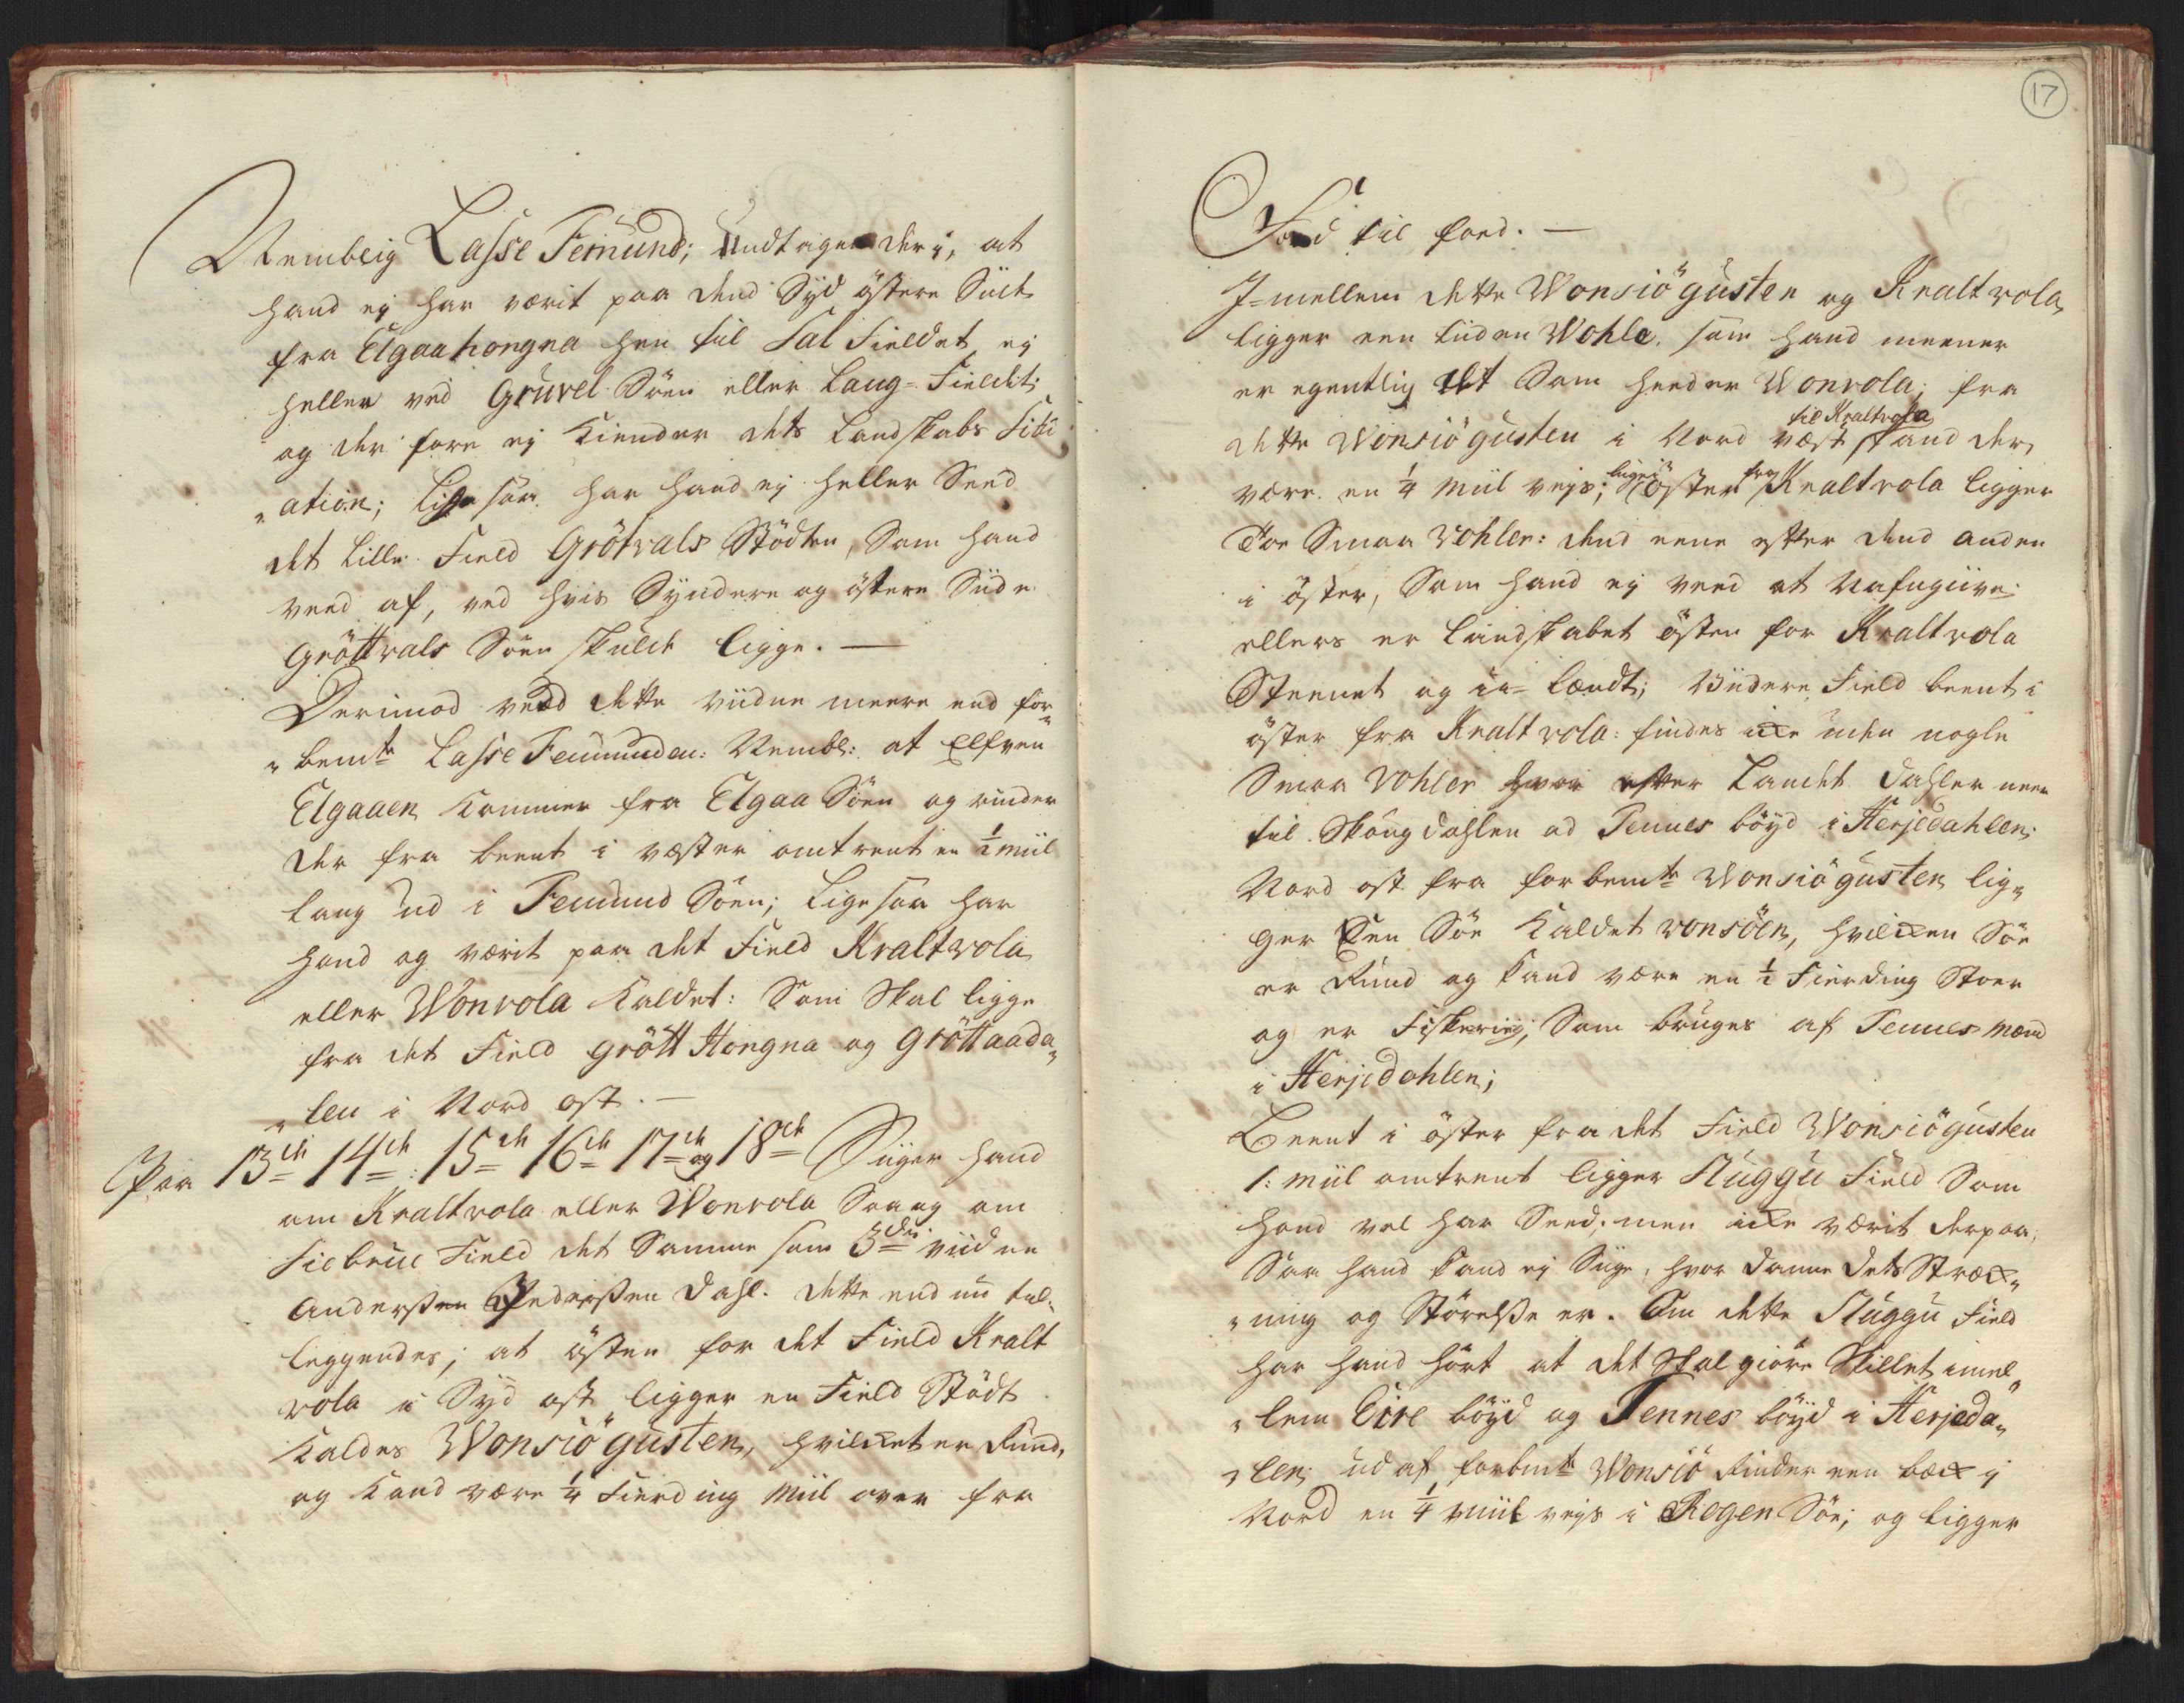 Nembeig Lasse Femund; Undtagen der i, at
hand ej har værit paa dend Syd östere Siide
fra Elgaahongna hen til Sal Fieldet ej
heller ved Gruvel Söen eller Lang-Fieldet;
og der fore ej Kiender dets Landskabs Situ
"ation; Lige saa har hand ej heller Seed
det Lille Field Grötvals Stödten, Som hand
veed af, ved hvis Syndere og östere Siide
Gröttvals Söen skulde ligge. —
Derimod veed dette viidne meere end for
"bemte Lasse Femunden: Nembl: at Elfven
Elgaaen Kommer fra Elgaa Söen og rinder
der fra beent i væster omtrent en ½ miil
lang ud i Femund Söen; Ligesaa har
hand og værit paa det Field Kraltvola
eller Wonvola Kaldet: Som Skal ligge
fra det Field Grött Hongna og Gröttaada„
"len i Nord ost. —
Paa 13de 14de: 15de 16de 17de og 18de Siiger hand
om Kraltvola eller Wonvola Saa og om
Siebrue Field det Samme som 3die viidne
Anderssen Pederssen Dahl. dette end nu til„
leggendes; at östen for det Field Kralt
vola i Syd ost ligger en Field Stödt
Kaldes Wonsiö gusten, hvilket er Rund,
og Kand være ¼ Fierding miil over fra
17
Foed til foed. —
I-mellem dette Wonsiö gusten og Kraltvola
ligger een liiden Wohle. som hand meener
er egentlig det Som heeder Wonvola; fra
til Kraltvola
dette Wonsiö gusten i Nord væst kand der
være en ¼ miil vejs; lige i öster fra Kraltvola ligger
Toe Smaa Vohler: dend eene efter dend anden
i öster, Som hand ej veed at Nafngiive
ellers er Landskabet östen for Kraltvola
Steenet og u-lændt; Viidere Field beent i
öster fra Kraltvola: findes icke uden nogle
Smaa Vohler hvor efter Landet Dahler neer
til Skougdahlen ad Tennes böyd i Herjedahlen;
Nord ost fra forbemte Wonsiö gusten lig„
ger Een Söe Kaldet vonsöen, hvilcken Söe
er Rund og kand være en ½ Fierding Stoer
og er Fiskeriig; Som bruges af Tennes mænd
i Herjedahlen;
Beent i öster fra det Field Wonsiö gusten
1: miil omtrent ligger Sluggu Field Som
hand vel har Seed; men icke værit derpaa,
Saa hand kand ej Siige, hvor danne dets Stræck„
"ning og Störelsse er. Om dette Sluggu Field
har hand hört at det Skal giöre Skillet imel„
"lem Eire böyd og Tennes böyd i Herjeda„
"len; ud af forbmte Wonsiö Rinder een bæck i
Nord en ¼ miil vejs i Rogen Söe; og ligger